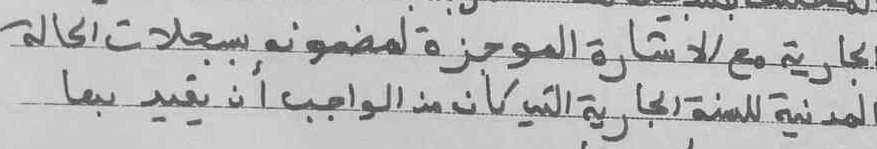 الجارية مع الاشارة الموجزة لمضمونه بسجلات الحالة
المدنية للسنة الجارية التي كان من الواجب أن يقيد بها